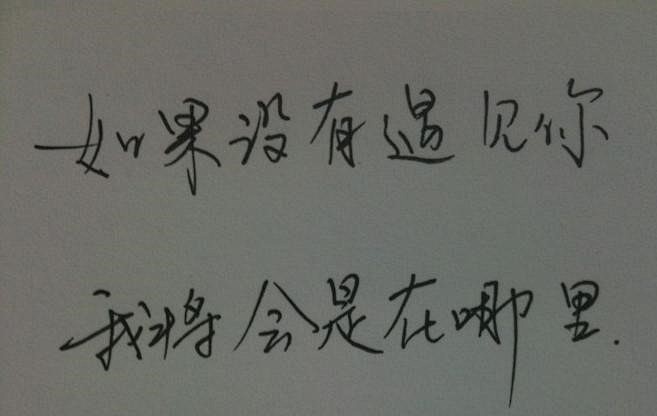 如果没有遇见你
我将会是在哪里.